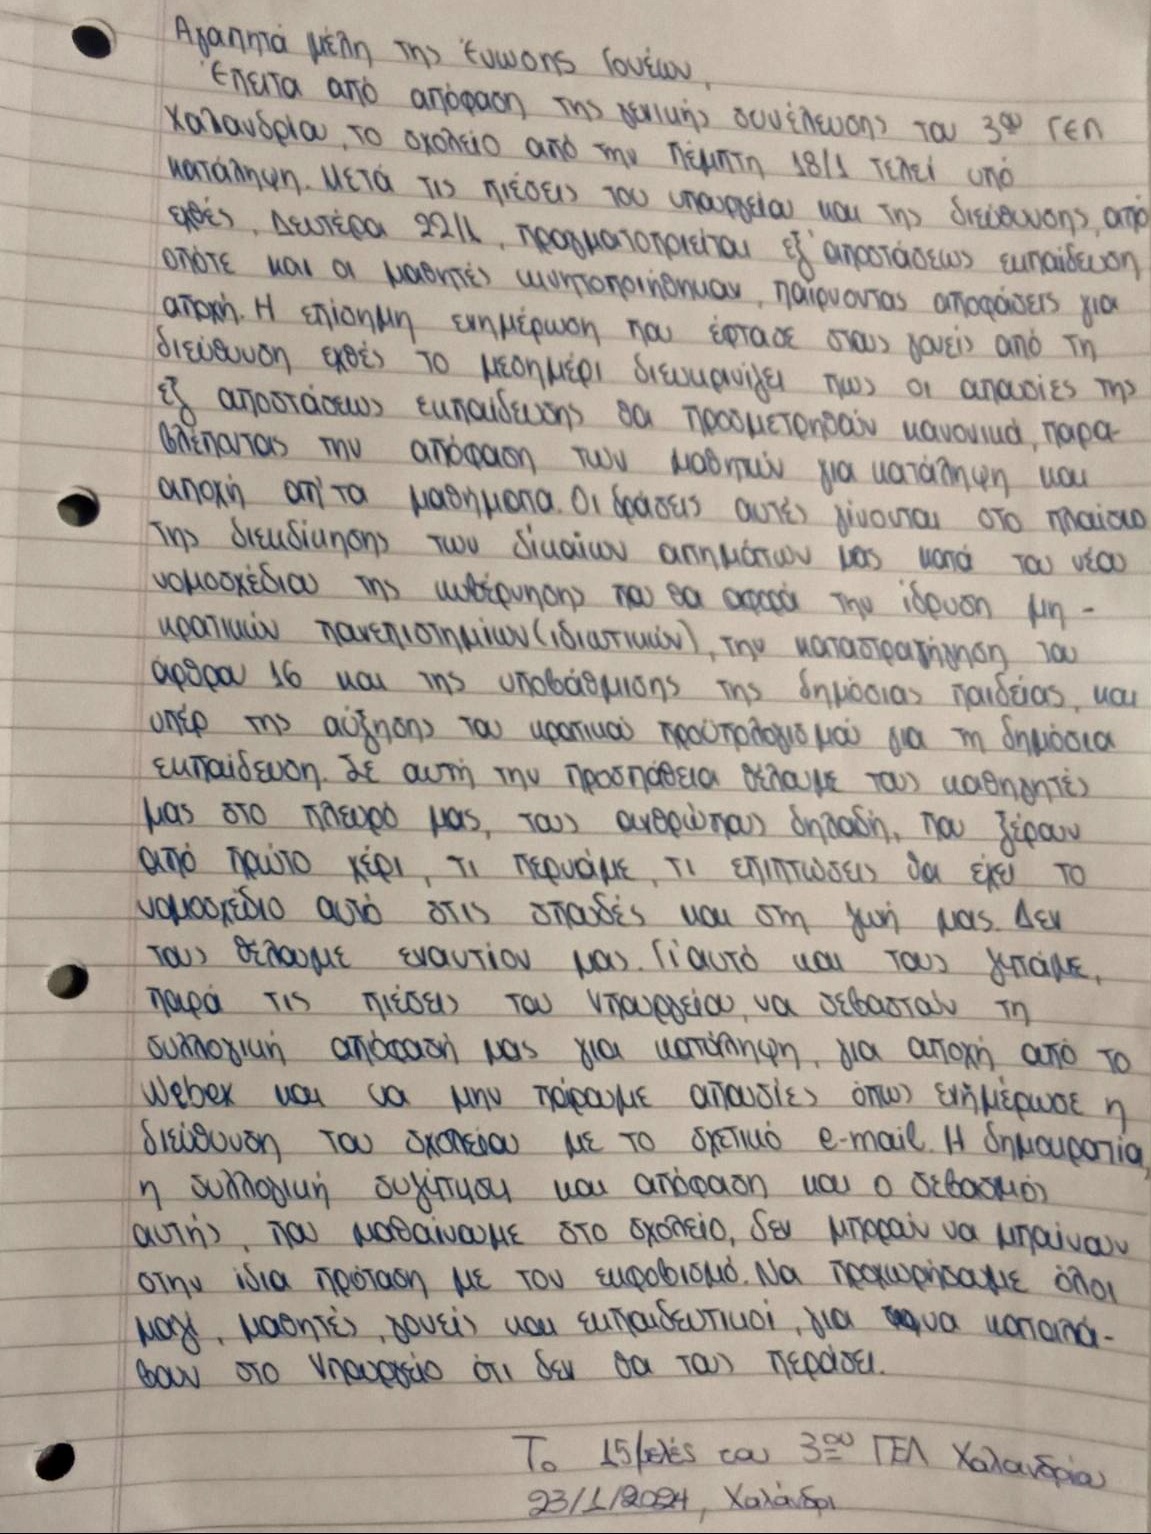 Αγαπητά μέλη της Ένωσης Γονέων,
Έπειτα από απόφαση της γενικής συνέλευσης του 3ου ΓΕΛ
Χαλανδρίου, το σχολείο από την Πέμπτη 18/1 τελεί υπό
κατάληψη. Μετά τις πιέσεις του υπουργείου και της διεύθυνσης, από
εχθές, Δευτέρα 22/1, πραγματοποιείται εξ' αποστάσεως εκπαίδευση
οπότε και οι μαθητές κινητοποιήθηκαν, παίρνοντας αποφάσεις για
αποχή. Η επίσημη ενημέρωση που έφτασε στους γονείς από τη
διεύθυνση εχθές το μεσημέρι διευκρινίζει πως οι απουσίες της
εξ αποστάσεως εκπαίδευσης θα προσμετρηθούν κανονικά, παρα-
βλέποντας την απόφαση των μαθητών για κατάληψη και
αποχή απ' τα μαθήματα. Οι δράσεις αυτές γίνονται στο πλαίσιο
της διεκδίκησης των δίκαιων αιτημάτων μας κατά του νέου
νομοσχέδιου της κυβέρνησης που θα αφορά την ίδρυση μη-
κρατικών πανεπιστημίων (ιδιωτικών), την καταστρατήγηση του
άρθρου 16 και της υποβάθμισης της δημόσιας παιδείας, και
υπέρ της αύξησης του κρατικού προϋπολογισμού για τη δημόσια
εκπαίδευση. Σε αυτή την προσπάθεια θέλουμε τους καθηγητές
μας στο πλευρό μας, τους ανθρώπους δηλαδή, που ξέρουν
από πρώτο χέρι, τι περνάμε, τι επιπτώσεις θα έχει το
νομοσχέδιο αυτό στις σπουδές και στη ζωή μας. Δεν
τους θέλουμε εναντίον μας. Γι'αυτό και τους ζητάμε,
παρά τις πιέσεις του Υπουργείου, να σεβαστούν τη
συλλογική απόφασή μας για κατάληψη, για αποχή από το
Webex και να μην πάρουμε απουσίες όπως ενημέρωσε η
διεύθυνση του σχολείου με το σχετικό e-mail. Η δημοκρατία,
η συλλογική συζήτηση και απόφαση και ο σεβασμός
αυτής, που μαθαίνουμε στο σχολείο, δεν μπορούν να μπαίνουν
στην ίδια πρόταση με τον εκφοβισμό. Να προχωρήσουμε όλοι
μαζί, μαθητές, γονείς και εκπαιδευτικοί, για να καταλά-
βουν στο Υπουργείο ότι δεν θα τους περάσει.
Το 15μελές του 3ου ΓΕΛ Χαλανδρίου
23/1/2024, Χαλάνδρι